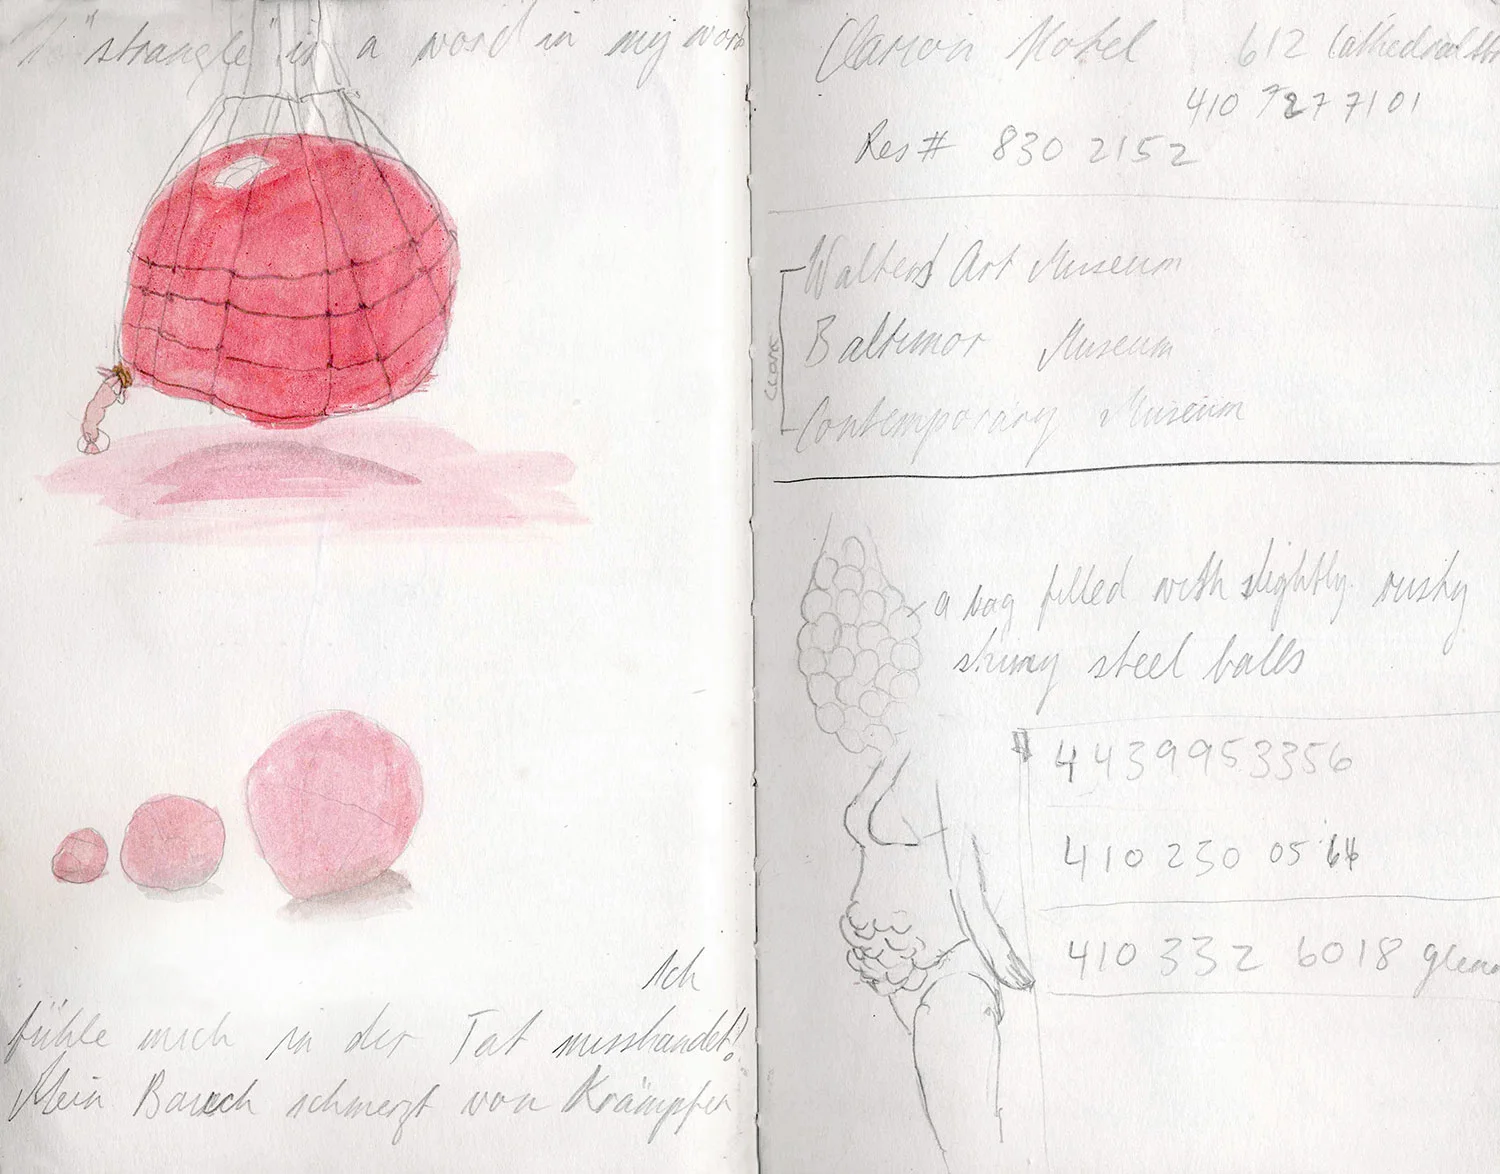 "strangle" is a word in my work
Ich
fühle mich in der Tat misshandet!
Mein Bauch schmerzt von Krämpfen
Clarion Hotel 612 Cathedral Str
410 727 7101
Res# 830 2152
Walters Art Museum
Baltimor Museum
Contemporary Museum
a bag filled with slightly rusty
shiney steel balls
4439953356
410 230 05 64
410 332 6018